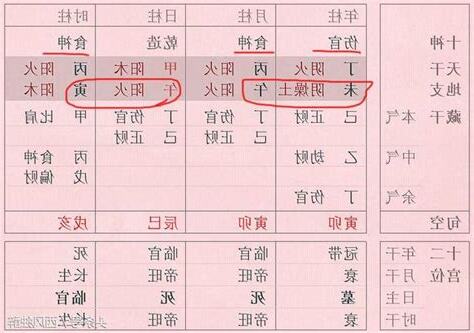 年柱 月柱 日柱 时柱
十神 伤官 食神 乾造 食神
天干 丁 阴火 丙 阳火 甲 阳木 丙 阳火
地支 未 阴燥土 午 阳火 午 阳火 寅 阳木
藏干 本气 己 正财 丁 伤官 丁 伤官 甲 比肩
己 正财 己 正财
中气 乙 劫财 丙 食神
戊 偏财
余气 丁 伤官
旬空 寅卯 寅卯 辰巳 戌亥
十二 年干 冠带 临官 临官 死
宫位 月干 衰 帝旺 帝旺 长生
日主 墓 死 死 临官
时干 衰 帝旺 帝旺 长生